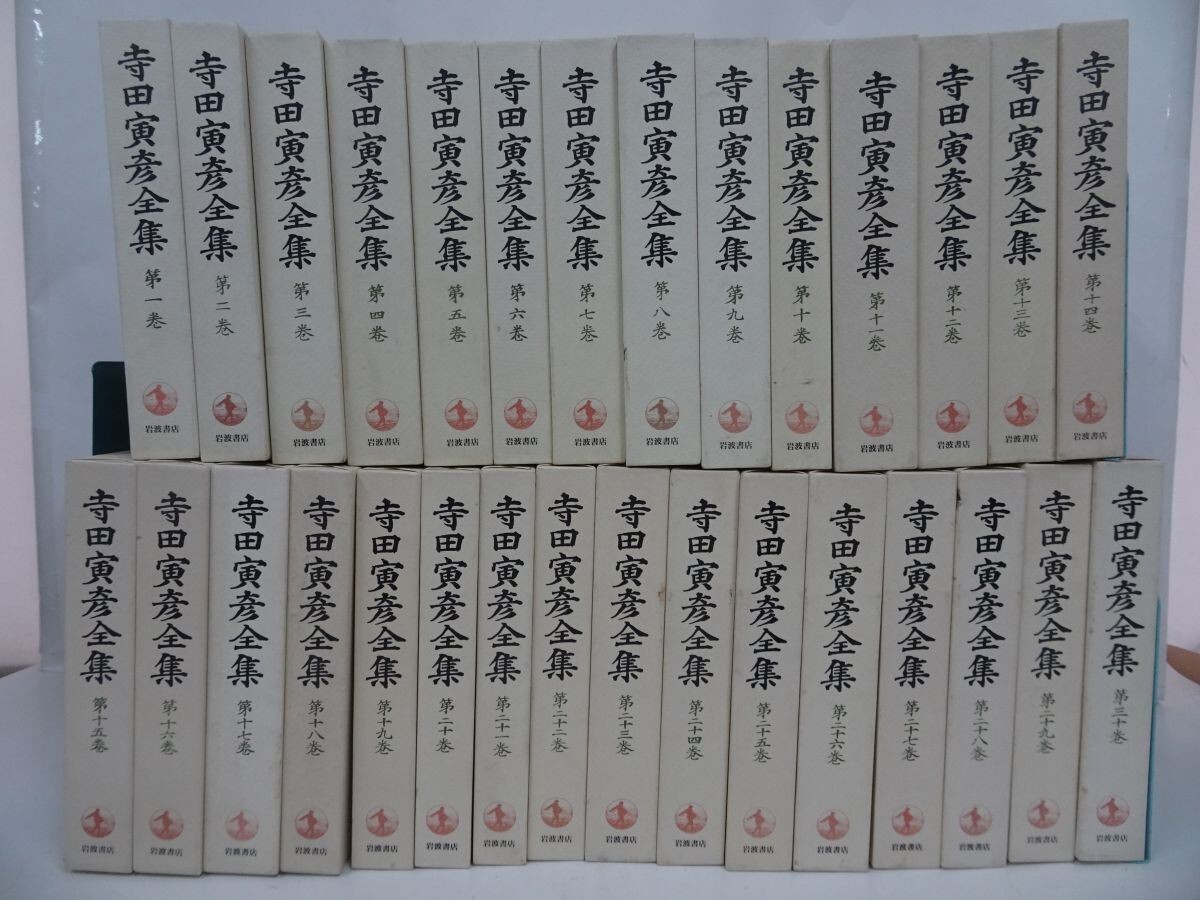 寺田寅彦全集 第一巻 岩波書店
寺田寅彦全集 第二巻 岩波書店
寺田寅彦全集 第三巻 岩波書店
寺田寅彦全集 第四巻 岩波書店
寺田寅彦全集 第五巻 岩波書店
寺田寅彦全集 第六巻 岩波書店
寺田寅彦全集 第七巻 岩波書店
寺田寅彦全集 第八巻 岩波書店
寺田寅彦全集 第九巻 岩波書店
寺田寅彦全集 第十巻 岩波書店
寺田寅彦全集 第十一巻 岩波書店
寺田寅彦全集 第十二巻 岩波書店
寺田寅彦全集 第十三巻 岩波書店
寺田寅彦全集 第十四巻 岩波書店
寺田寅彦全集 第十五巻 岩波書店
寺田寅彦全集 第十六巻 岩波書店
寺田寅彦全集 第十七巻 岩波書店
寺田寅彦全集 第十八巻 岩波書店
寺田寅彦全集 第十九巻 岩波書店
寺田寅彦全集 第二十巻 岩波書店
寺田寅彦全集 第二十一巻 岩波書店
寺田寅彦全集 第二十二巻 岩波書店
寺田寅彦全集 第二十三巻 岩波書店
寺田寅彦全集 第二十四巻 岩波書店
寺田寅彦全集 第二十五巻 岩波書店
寺田寅彦全集 第二十六巻 岩波書店
寺田寅彦全集 第二十七巻 岩波書店
寺田寅彦全集 第二十八巻 岩波書店
寺田寅彦全集 第二十九巻 岩波書店
寺田寅彦全集 第三十巻 岩波書店